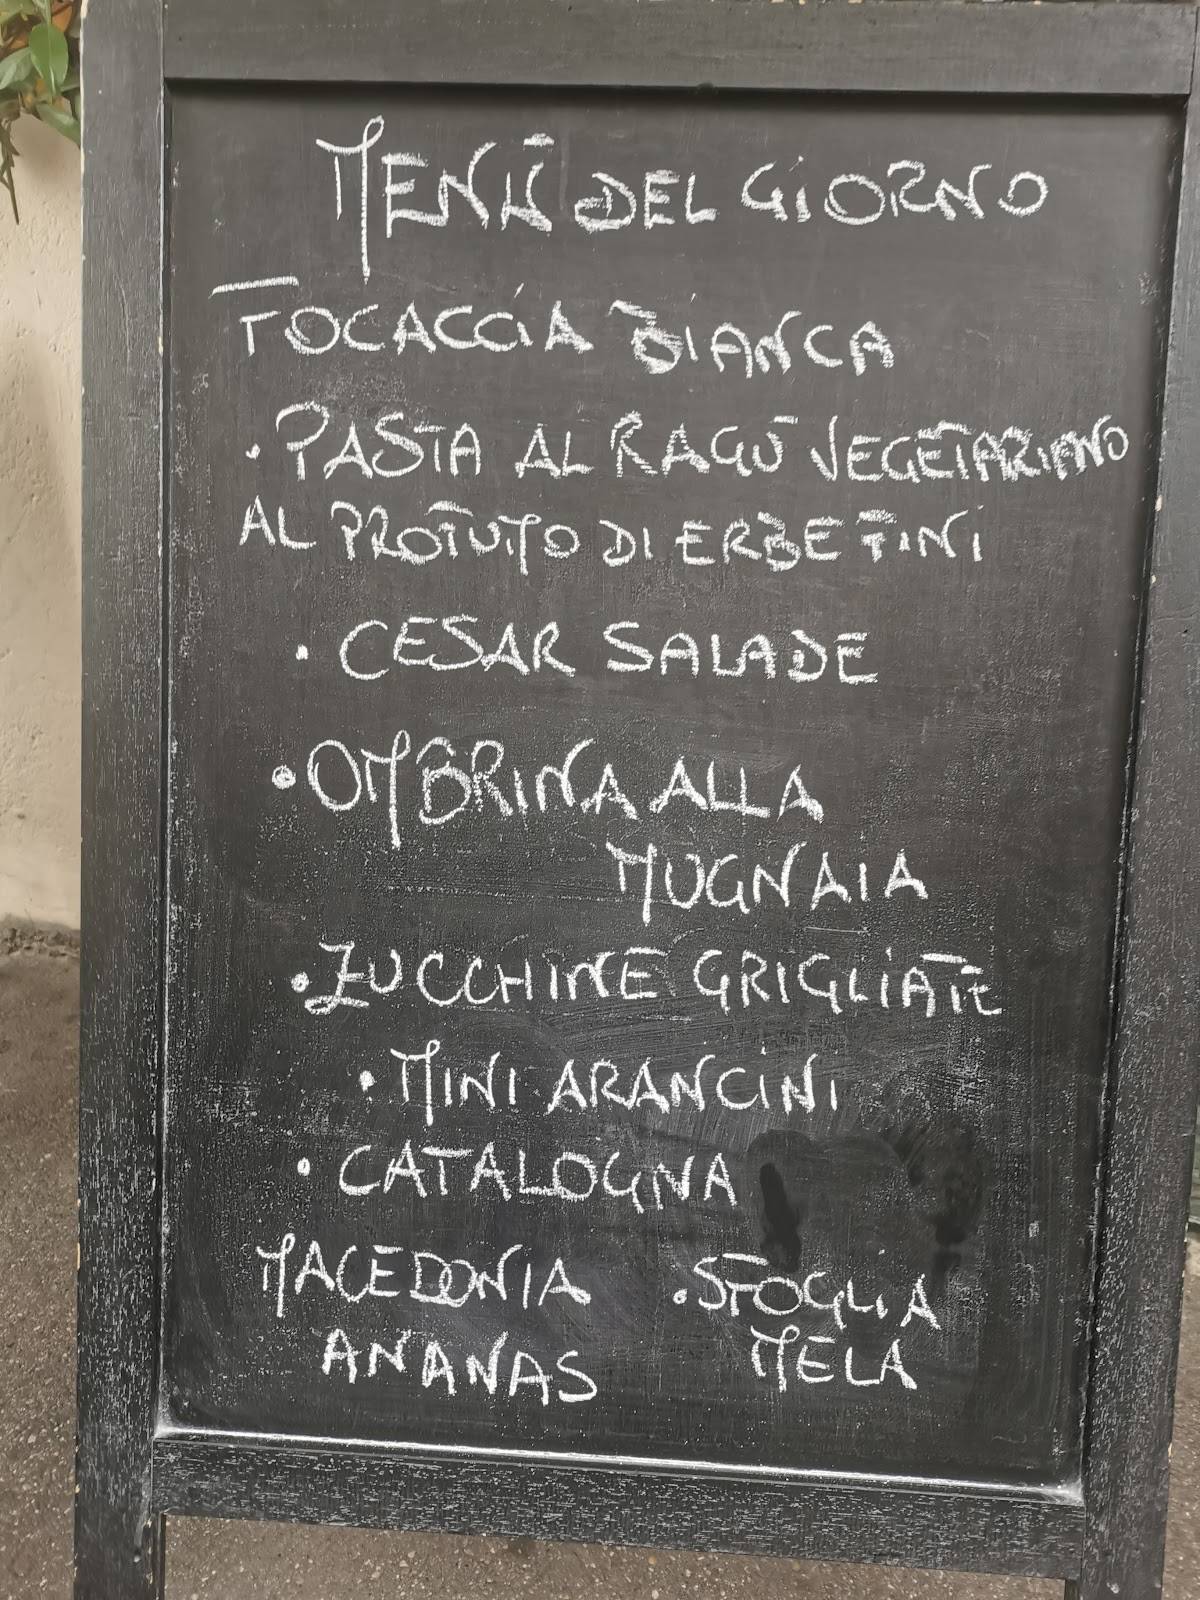 MENÙ DEL GIORNO
FOCACCIA BIANCA
• PASTA AL RAGÙ VEGETARIANO
AL PROFUMO DI ERBE FINI
• CESAR SALADE
• OMBRINA ALLA
MUGNAIA
• ZUCCHINE GRIGLIATE
• MINI ARANCINI
• CATALOGNA
MACEDONIA
ANANAS
• SFOGLIA
MELA